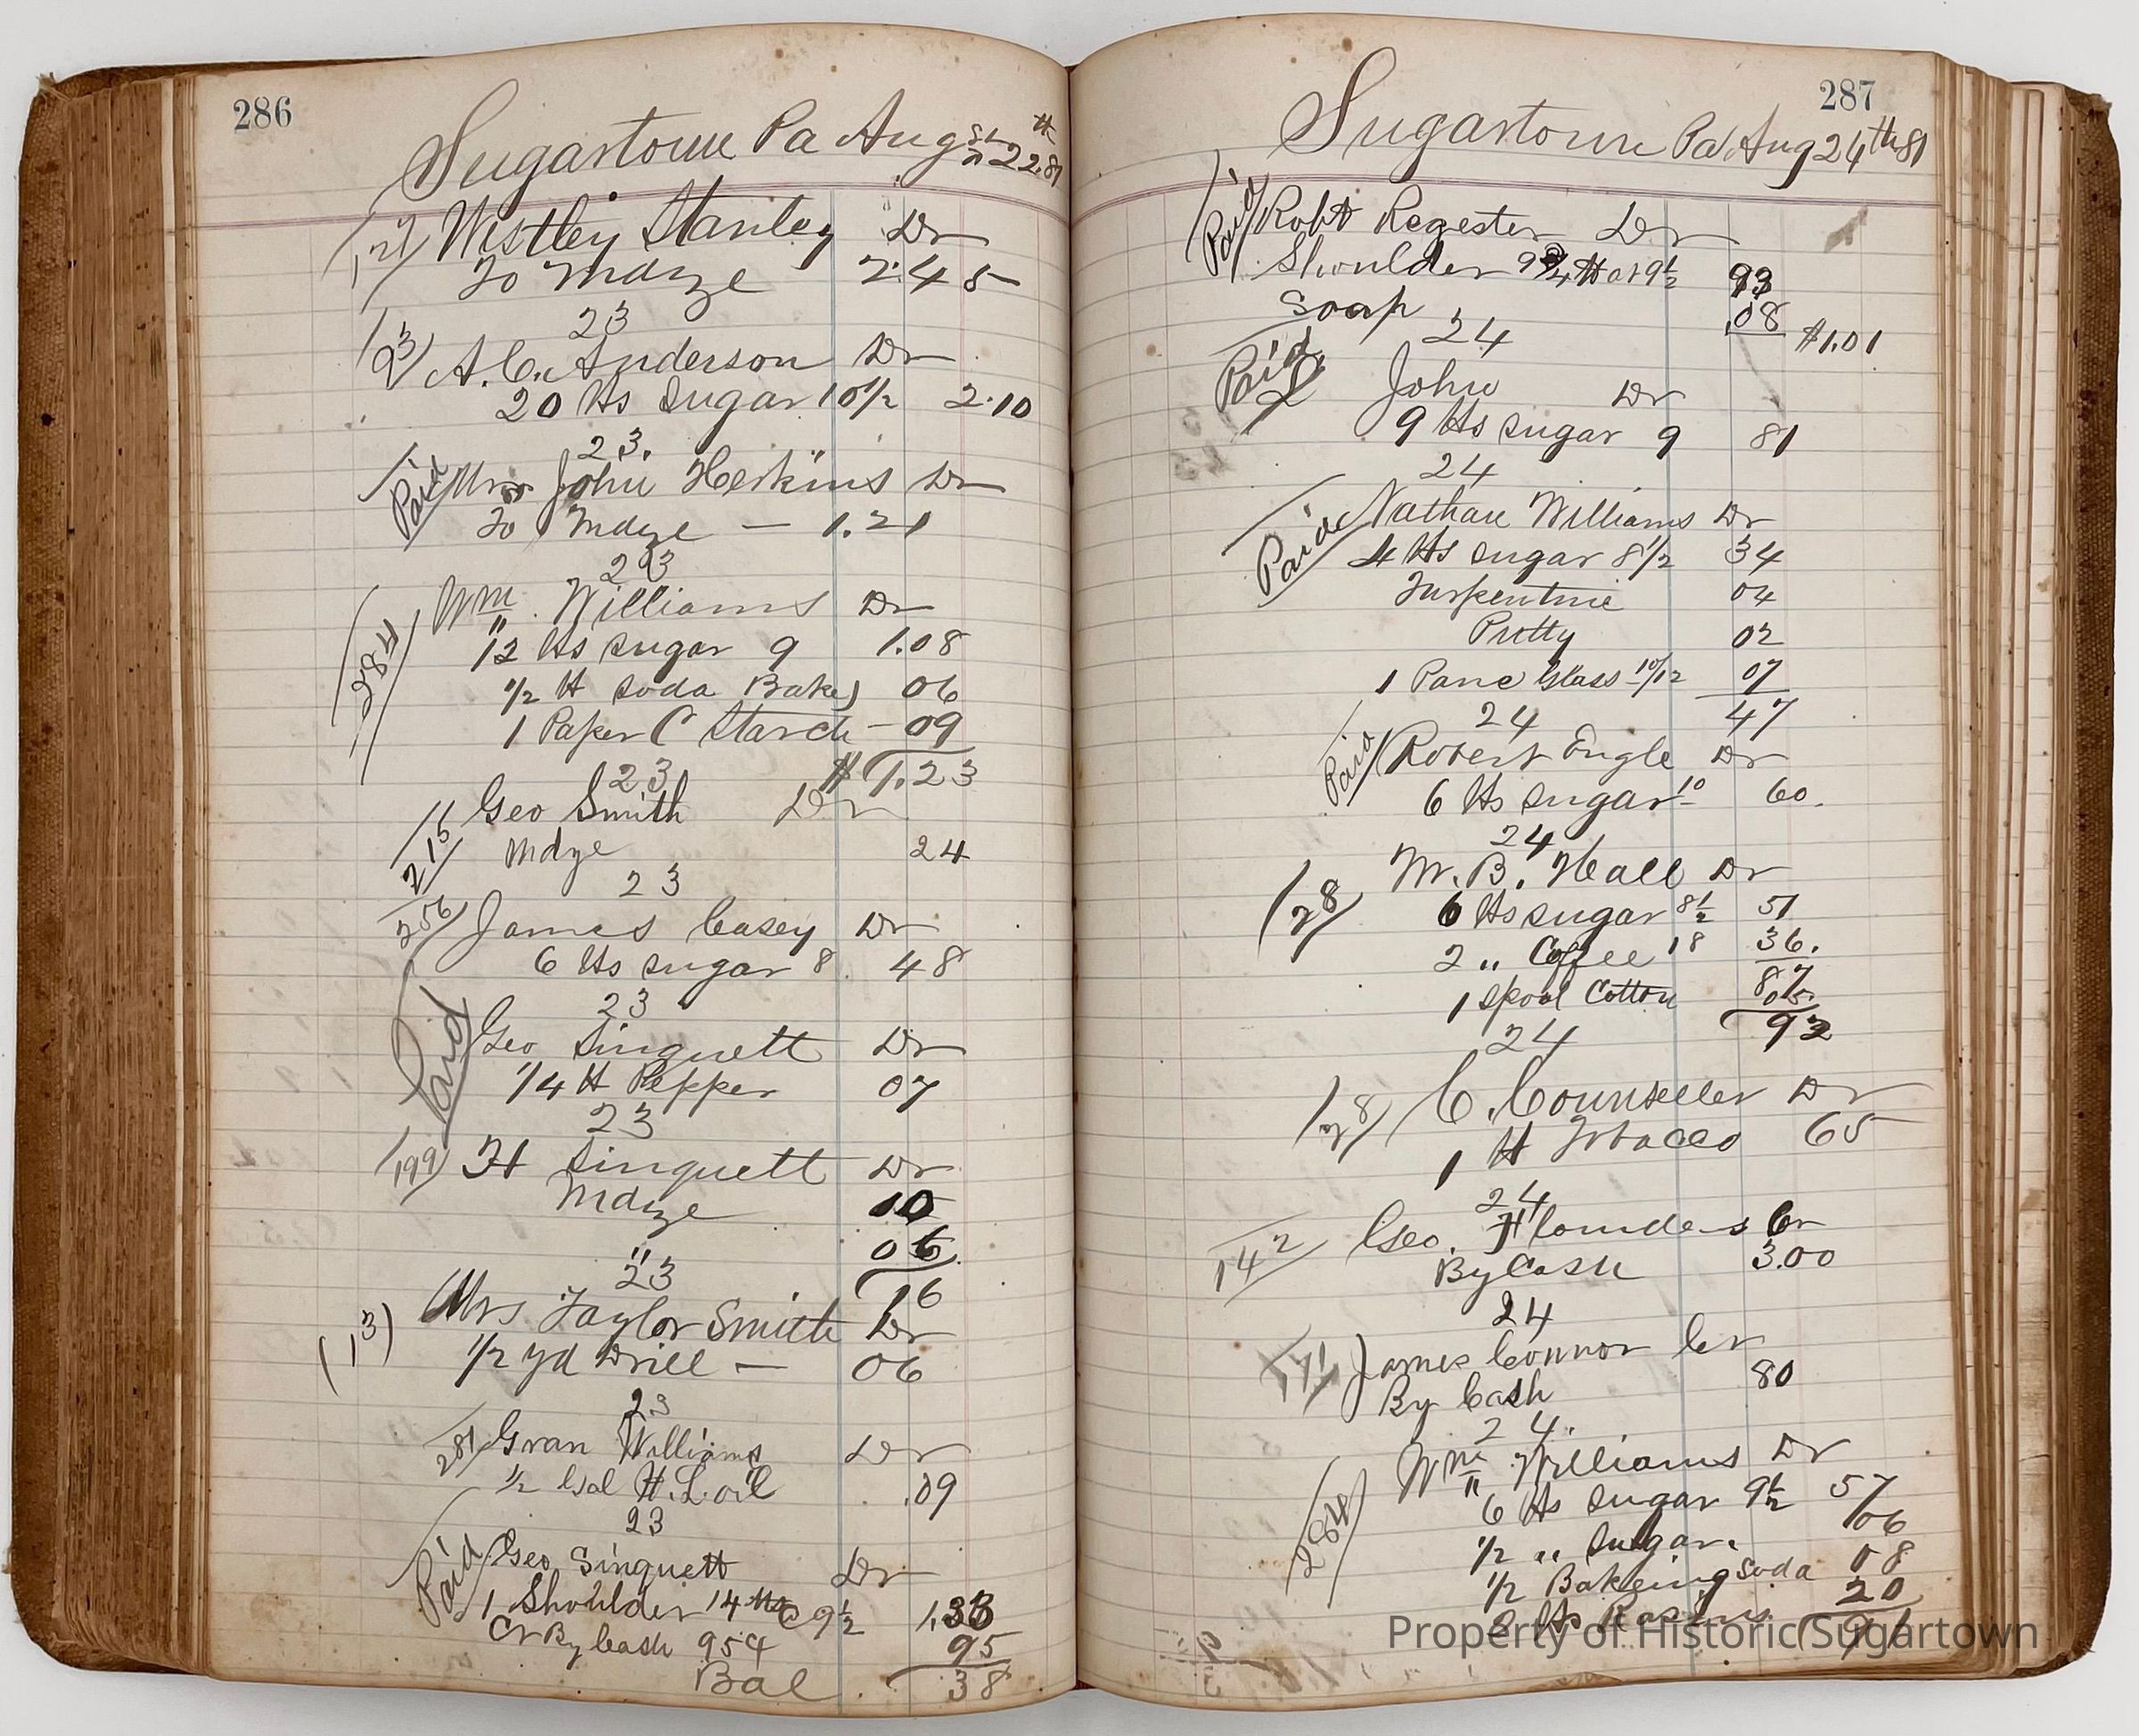 286
Sugartown Pa Aug 22. 81
127 Westley Stanley Dr
To Mdze 2.45
23
93 A. C. Anderson Dr
20 lbs Sugar 10 1/2 2.10
23.
Paid Mrs John Herkins Dr
To Mdze — 1.21
23
284 Wm. Williams Dr
12 lbs sugar 9 1.08
1/2 lb Soda Bake 06
1 Paper C Starch — 09
$ 1.23
23
215 Geo Smith Dr
Mdze 24
23
256 James Casey Dr
6 lbs sugar 8 48
23
Paid Geo Singuett Dr
1/4 lb Pepper 07
23
199 H Singuett Dr
Mdze 10
06
16
23
(13) Mrs Taylor Smith Dr
1/2 yd Drill — 06
23
281 Gran Williams Dr
1/2 Gal H. L. oil .09
23
Paid Geo Singuett Dr
1 Shoulder 14 lbs @ 9 1/2 1,33
Cr By Cash 95¢ 95
Bal 38
287
Sugartown Pa Aug 24th 81
Paid Robt Regester Dr
Shoulder 9 3/4 lb at 9 1/2 93
Soap .08 $1.01
24
Paid John Dr
9 lbs sugar 9 81
24
Paid Nathan Williams Dr
4 lbs sugar 8 1/2 34
Turpentine 04
Putty 02
1 Pane Glass 10/12 07
47
24
Paid Robert Engle Dr
6 lbs sugar 10 60.
24
28 M. B. Hall Dr
6 lbs sugar 8 1/2 51
2 " Coffee 18 36.
87
1 Spool Cotton 05
92
24
28 C. Counseller Dr
1 lb Tobacco 65
24
142 Geo. Flounders Cr
By Cash 3.00
24
171 James Connor Cr
By Cash 80
24.
284 Wm Williams Dr
6 lbs Sugar 9 1/2 57
1/2 " Sugar. 06
1/2 Bakeing Soda 08
2 lbs 20
91
Property of Historic Sugartown